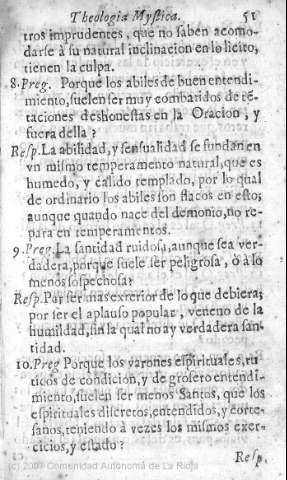 Theologia Mystica. 51
tros imprudentes, que no saben acomo-
darse à su natural inclinacion en lo licito,
tienen la culpa.
8. Preg. Porque los abiles de buen entendi-
miento, suelen ser muy combatidos de tē-
taciones deshonestas en la Oracion, y
fuera della?
Resp. La abilidad, y sensualidad se fundan en
vn mismo temperamento natural, que es
humedo, y calido templado, por lo qual
de ordinario los abiles son flacos en esto;
aunque quando nace del demonio, no re-
para en temperamentos.
9. Preg. La santidad ruidosa, aunque sea ver-
dadera, porque suele ser peligrosa, ò à lo
menos sospechosa?
Resp. Por ser mas exterior de lo que debiera;
por ser el aplauso popular, veneno de la
humildad, sin la qual no ay verdadera san-
tidad.
10. Preg Porque los varones espirituales, rus-
ticos de condicion, y de grosero entendi-
miento, suelen ser menos Santos, que los
espirituales discretos, entendidos, y corte-
sanos, teniendo à vezes los mismos exer-
cicios, y estado?
Resp.
(c) 2007 Comunidad Autónoma de La Rioja